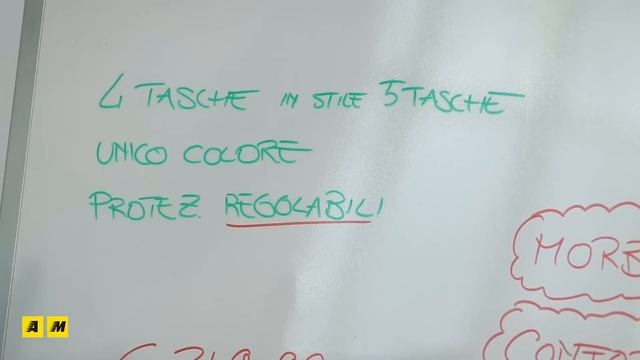 4 TASCHE IN STILE 5 TASCHE
UNICO COLORE
PROTEZ. REGOLABILI
MORB
CONF
AM